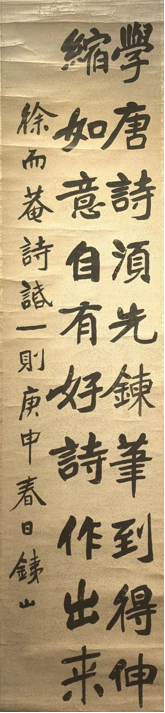 學唐詩須先鍊筆到得伸
縮如意自有好詩作出来
徐而菴詩話一則庚申春日銕山